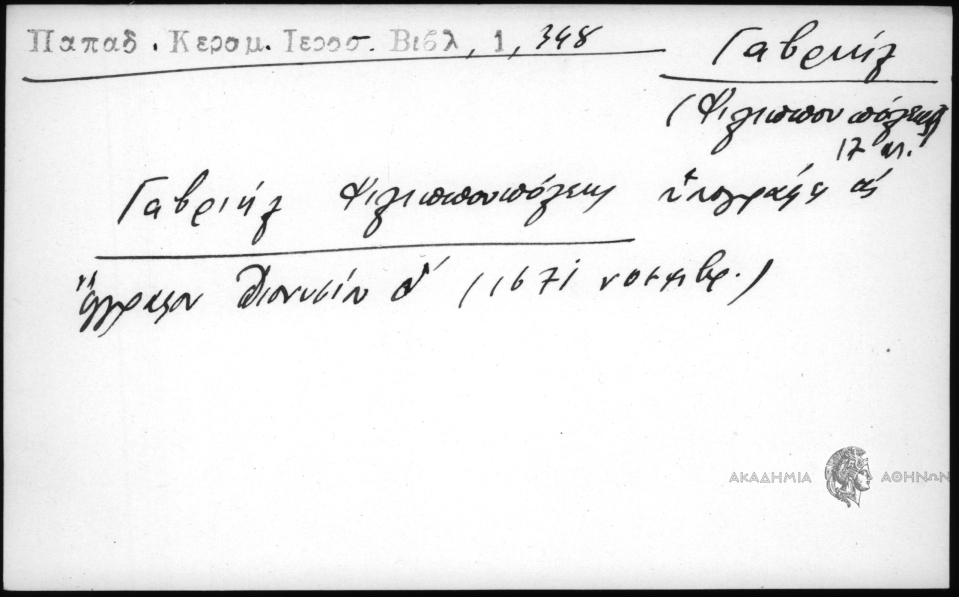 Παπαδ. Κεραμ. Ιεροσ. Βιβλ, 1, 348
Γαβριήλ
(Φιλιππουπόλεως)
17 αι.
Γαβριήλ Φιλιππουπόλεως ὑπογράφει εἰς
ἔγγραφον Διονυσίου Δ΄ (1671 νοεμβρ.)
ΑΚΑΔΗΜΙΑ ΑΘΗΝΩΝ